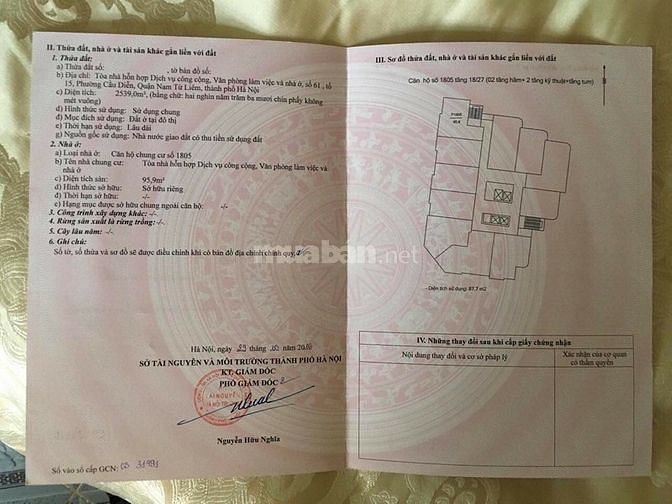 II. Thửa đất, nhà ở và tài sản khác gắn liền với đất
1. Thửa đất:
a) Thửa đất số: , tờ bản đồ số:
b) Địa chỉ: Tòa nhà hỗn hợp Dịch vụ công cộng, Văn phòng làm việc và nhà ở, số 61, tổ
15, Phường Cầu Diễn, Quận Nam Từ Liêm, thành phố Hà Nội
c) Diện tích: 2539,0m², (bằng chữ: hai nghìn năm trăm ba mươi chín phẩy không
mét vuông)
d) Hình thức sử dụng: Sử dụng chung
đ) Mục đích sử dụng: Đất ở tại đô thị
e) Thời hạn sử dụng: Lâu dài
g) Nguồn gốc sử dụng: Nhà nước giao đất có thu tiền sử dụng đất
2. Nhà ở:
a) Loại nhà ở: Căn hộ chung cư số 1805
b) Tên nhà chung cư: Tòa nhà hỗn hợp Dịch vụ công cộng, Văn phòng làm việc và
nhà ở
c) Diện tích sàn: 95,9m²
d) Hình thức sở hữu: Sở hữu riêng
đ) Thời hạn sở hữu: -/-
e) Hạng mục được sở hữu chung ngoài căn hộ: -/-
3. Công trình xây dựng khác: -/-
4. Rừng sản xuất là rừng trồng: -/-
5. Cây lâu năm: -/-
6. Ghi chú:
Số tờ, số thửa và sơ đồ sẽ được điều chỉnh khi có bản đồ địa chính chính quy.
Hà Nội, ngày 29 tháng năm 20
SỞ TÀI NGUYÊN VÀ MÔI TRƯỜNG THÀNH PHỐ HÀ NỘI
KT. GIÁM ĐỐC
PHÓ GIÁM ĐỐC
Nguyễn Hữu Nghĩa
Số vào sổ cấp GCN: CS 31991
III. Sơ đồ thửa đất, nhà ở và tài sản khác gắn liền với đất
Căn hộ số 1805 tầng 18/27 (02 tầng hầm+ 2 tầng kỹ thuật+tầng tum)
B
- Diện tích sử dụng: 87,7 m2
IV. Những thay đổi sau khi cấp giấy chứng nhận
Nội dung thay đổi và cơ sở pháp lý
Xác nhận của cơ quan
có thẩm quyền
muaban.net